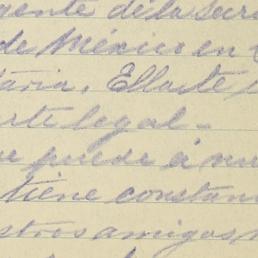 gente de la Secre
de México en
taria, Ellaste
arte legal-
ue puede á nue
tiene constan
stros amigos